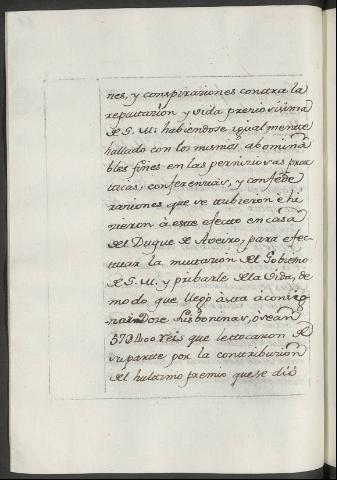 nes, y conspiraciones contra la
reputacion y vida preciosissima
de S. M: habiendose igualmente
hallado con los mismos abomina
bles fines en las perniciosas prac
ticas, conferencias, y confede
raciones que se tubieron è hi
cieron à este efecto en casa
del Duque de Aveiro, para efec-
tuar la mutacion del Gobierno
de S. M. y pribarle de la Vida, de
modo que llegò àsta à consig
nar Doze Lisboninas, ò sean
57 400 reis que le tocaron de
su parte por la contribucion
del huldimo premio que se diò